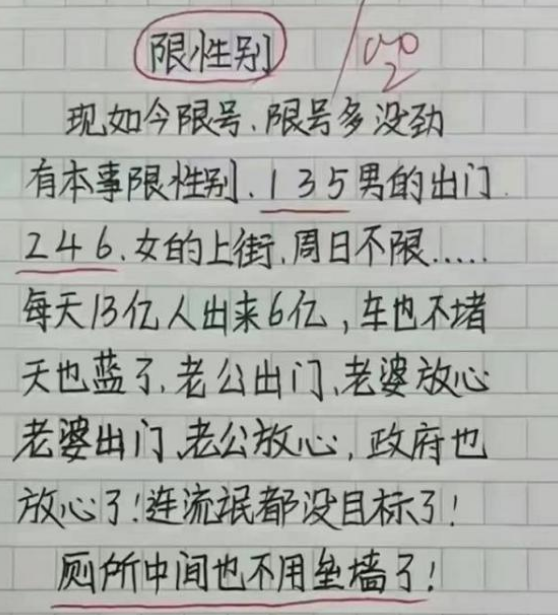 限性别
现如今限号、限号多没劲
有本事限性别、135男的出门
246、女的上街、周日不限.....
每天13亿人出来6亿，车也不堵
天也蓝了、老公出门、老婆放心
老婆出门、老公放心，政府也
放心了！连流氓都没目标了！
厕所中间也不用垒墙了！